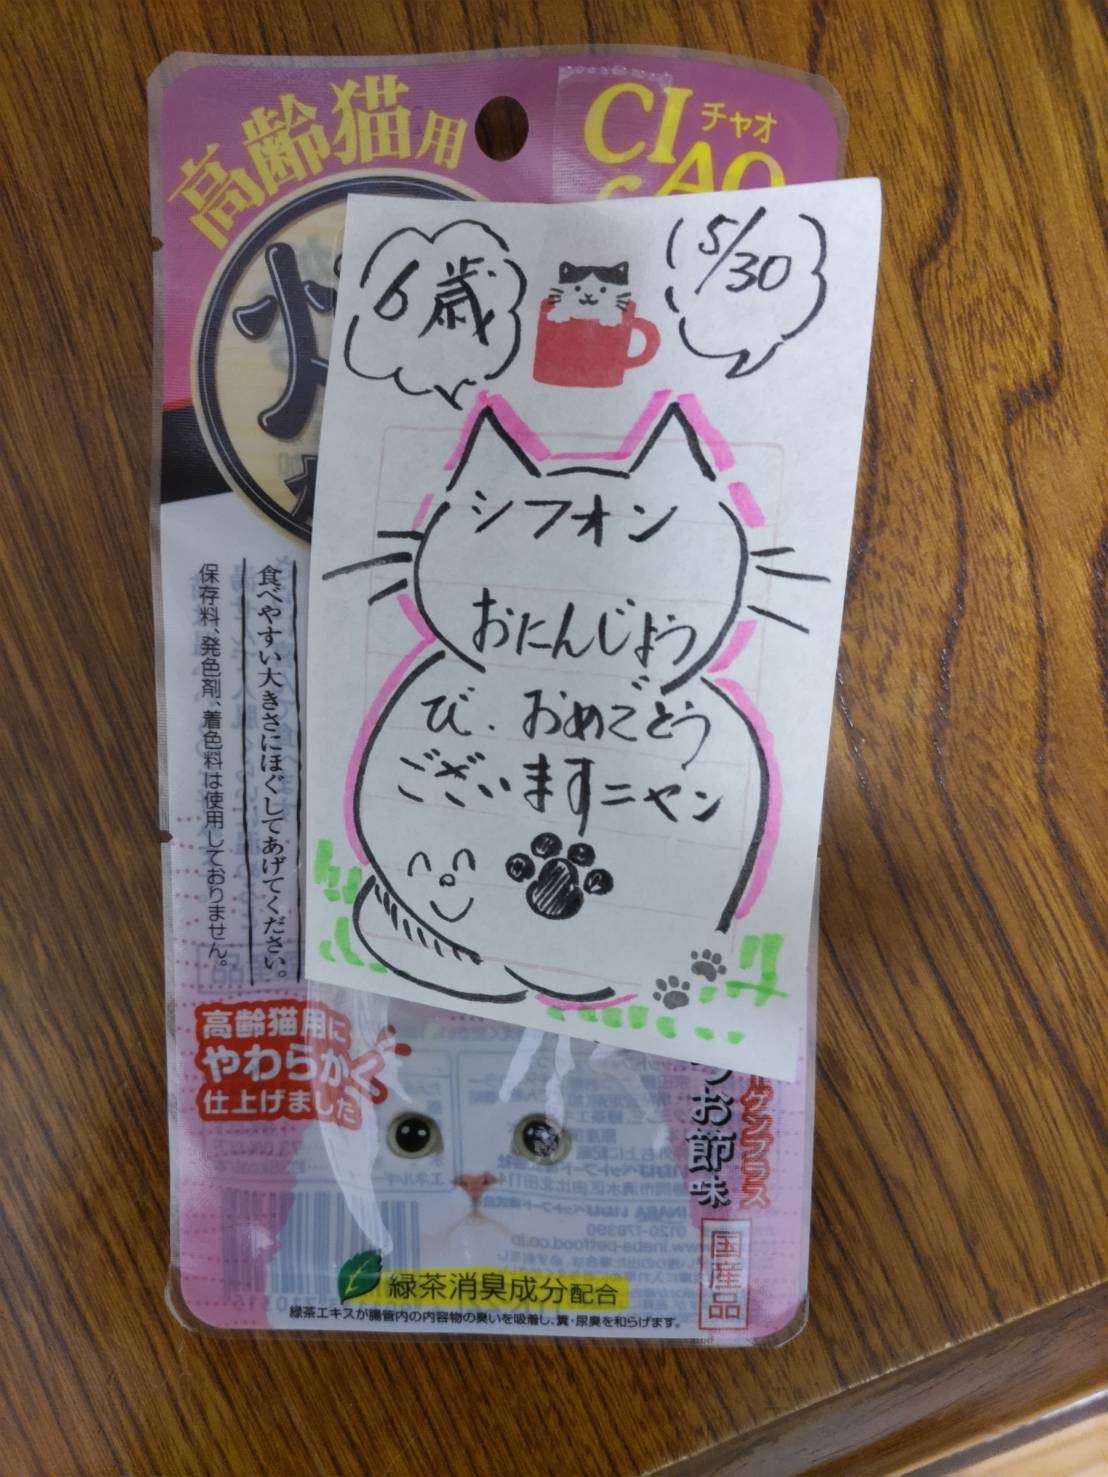 高齢猫用
CIAO
チャオ
6歳
5/30
シフォン
おたんじょう
び、おめでとう
ございますニャン
食べやすい大きさにほぐしてあげてください。
保存料、発色剤、着色料は使用しておりません。
高齢猫用に
やわらかく
仕上げました
お節味
国産品
緑茶消臭成分配合
緑茶エキスが腸管内の内容物の臭いを吸着し、糞・尿臭を和らげます。